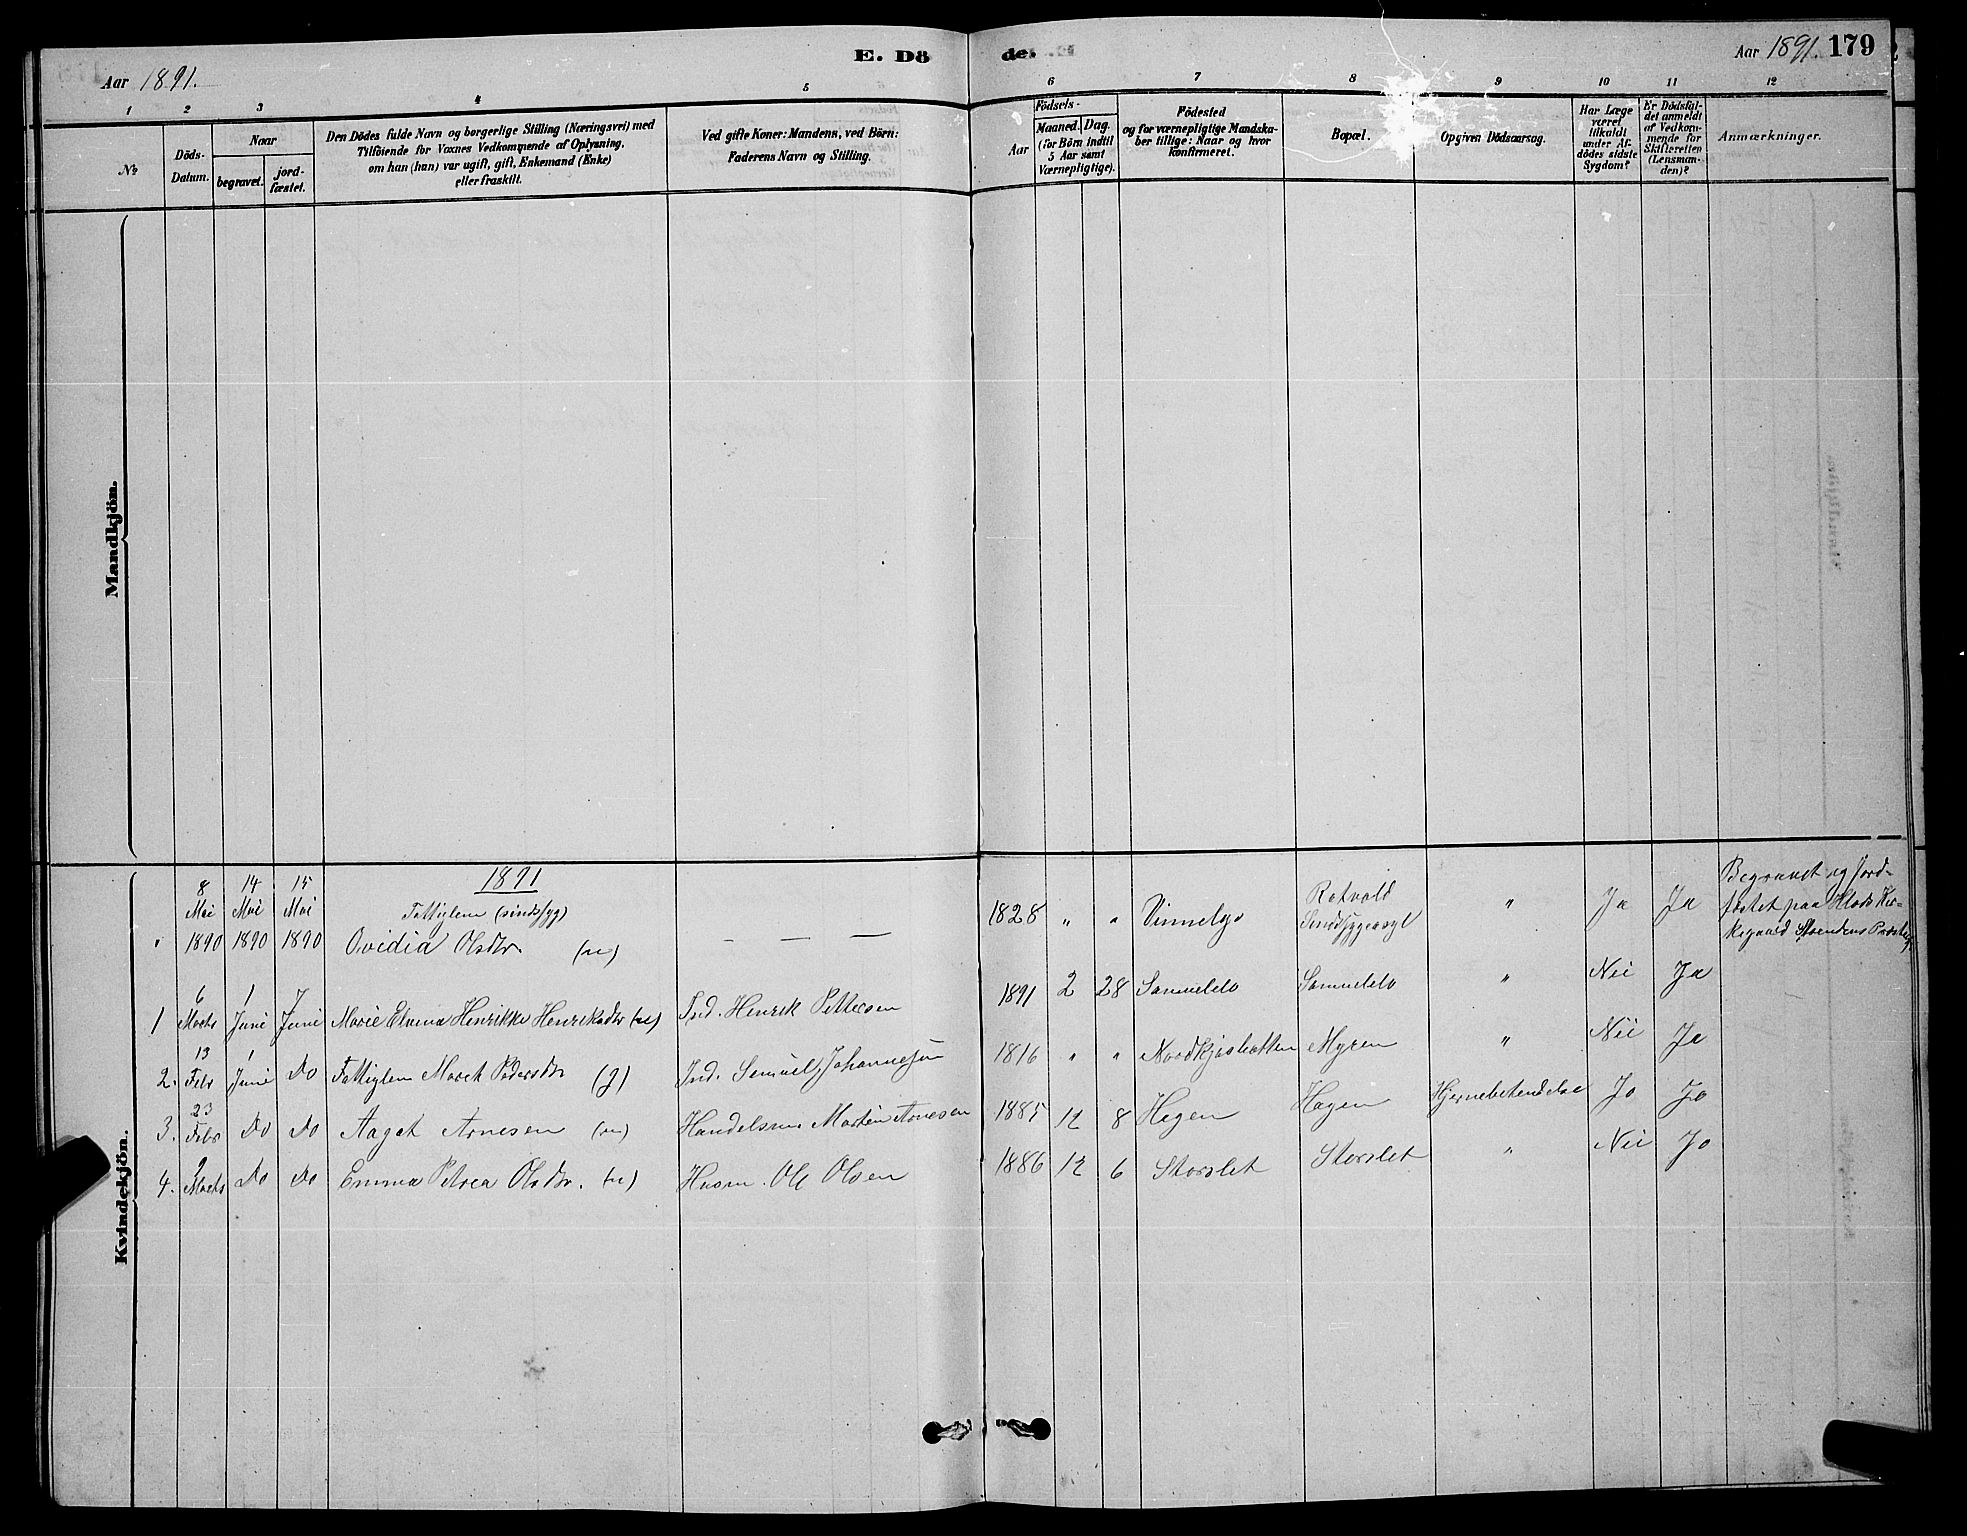 E. Dö de.
Aar 1891.
Aar 1891. 179
1 2 3 4 5 6 7 8 9 10 11 12
№
Döds-Datum.
Naar
begravet. jord-fæstet.
Den Dödes fulde Navn og borgerlige Stilling (Næringsvei) med
Tilföiende for Voxnes Vedkommende af Oplysning,
om hun (han) var ugift, gift, Enkemand (Enke)
eller fraskilt.
Ved gifte Koner: Mandens, ved Börn:
Faderens Navn og Stilling.
Födsels-
Aar
Maaned. Dag.
(for Börn indtil
5 Aar samt
Værnepligtige).
Födested
og for værnepligtige Mandska-
ber tillige: Naar og hvor
konfirmeret.
Bopæl.
Opgiven Dödsaarsag.
Har Læge
været
tilkaldt
under Af-
dödes sidste
Sygdom?
Er Dödsfal-
det anmeldt
af Vedkom-
mende for
Skifteretten
(Lensman-
den)?
Anmærkninger.
Mandkjön.
Kvindekjön.
1891
" 8 Mai 1890 14 Mai 1890 15 Mai 1890 Fattiglem (sindssyg) Ovidia Olsdtr (u) — — — 1828 " " Rotvold Sindssygeasyl " Ja Ja Begravet og Jord-
fæstet paa Hlads Kir-
kegaard
1 6 Marts 1 Juni 7 Juni Marie Elvina Henrikke Henriksdtr (u) Ind. Henrik Pettersen 1891 2 28 Samuelslv Samuelslv " Nei Ja
2. 13 Febr 1 Juni Do Fattiglem Maret Pedersdtr (g) Ind. Semuel Johannesen 1816 " " Nordkjosbotten Myren " Nei Ja
3. 23 Febr Do Do Aagot Arnesen (u) Handelsm Morten Arnesen 1885 12 8 Hegen Hagen Hjernebetendelse Ja Ja
4. 9 Marts Do Do Emma Petrea Olsdtr. (u) Husm. Ole Olsen 1886 12 6 Storslet Storslet " Nei Ja